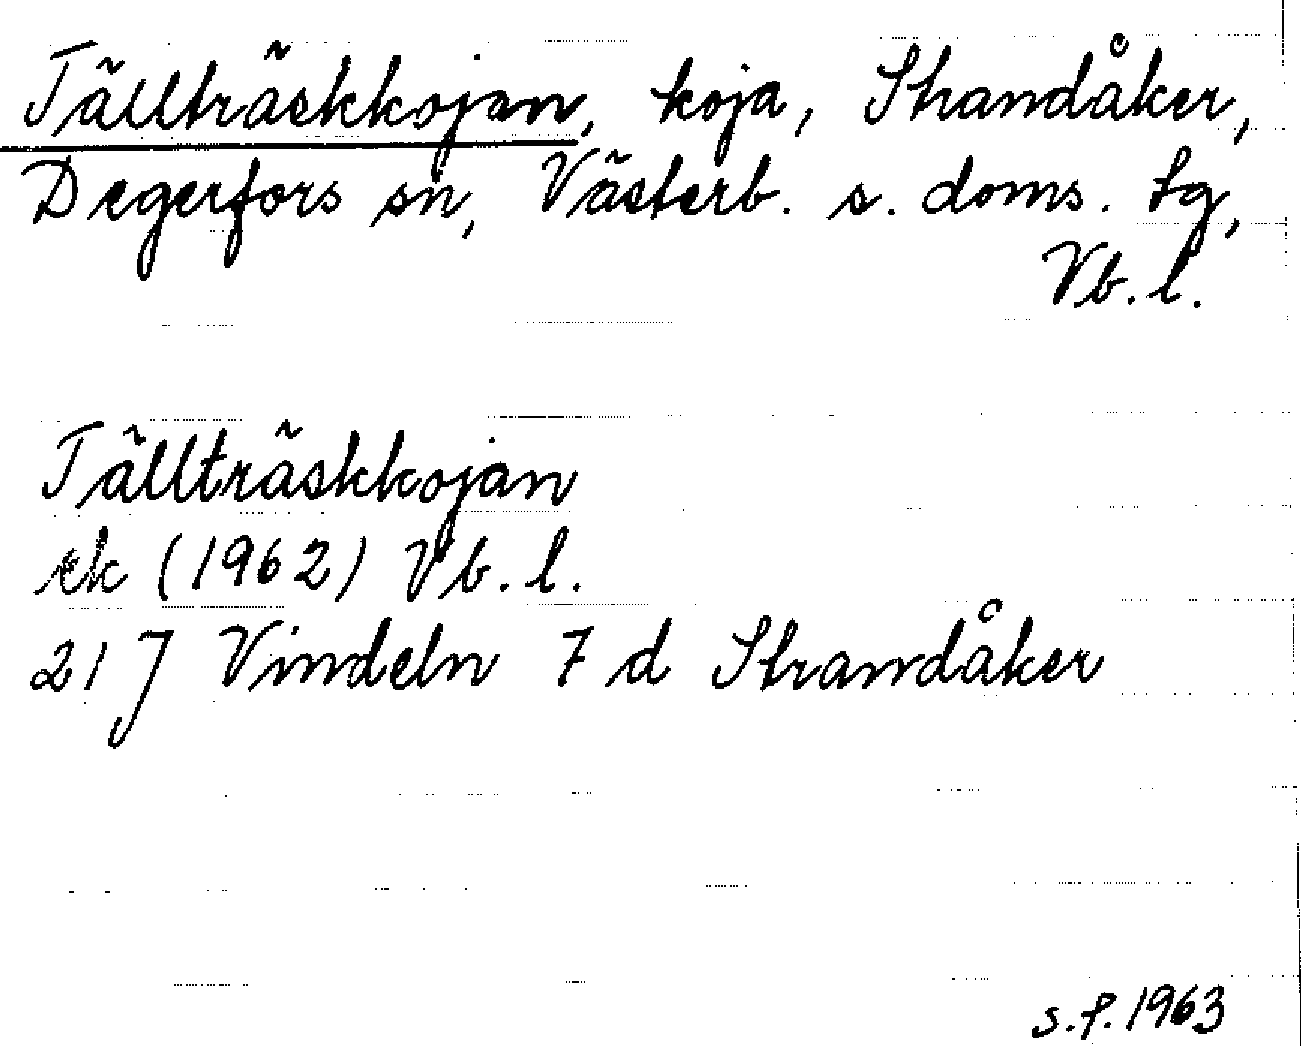 Tällträskkojan, koja, Strandåker,
Degerfors sn, Västerb. s. doms. tg,
Vb. l.
Tällträskkojan
ek (1962) Vb. l.
21 J Vindeln 7 d Strandåker
s.f. 1963